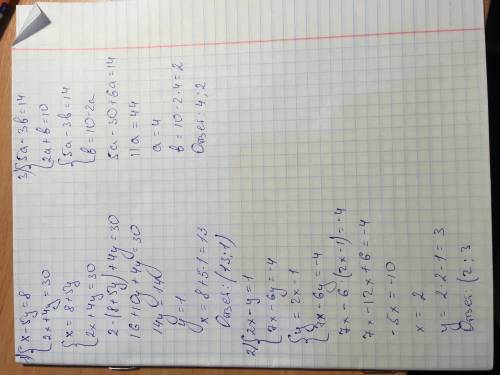 1) { x - 5y = 8
2x + 4y = 30
{ x = 8 + 5y
2x + 4y = 30
2·(8 + 5y) + 4y = 30
16 + 10y + 4y = 30
14y = 14
y = 1
x = 8 + 5·1 = 13
Ответ: (13;1)
2) { 2x - y = 1
7x - 6y = -4
{ y = 2x - 1
7x - 6y = -4
7x - 6(2x - 1) = -4
7x - 12x + 6 = -4
-5x = -10
x = 2
y = 2·2 - 1 = 3
Ответ: (2;3
3) { 5a - 3в = 14
2a + в = 10
{ 5a - 3в = 14
в = 10 - 2a
5a - 30 + 6a = 14
11a = 44
a = 4
в = 10 - 2·4 = 2
Ответ: 4;2